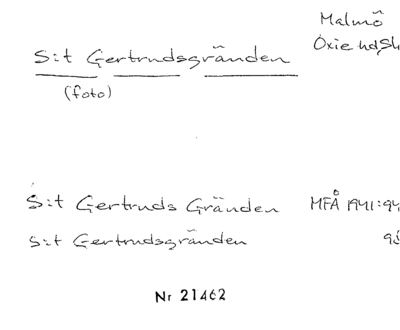 Malmö
S:t Gertrudsgränden Oxie hd, Sk
(foto)
S:t Gertruds Gränden MFÅ 1941:94
S:t Gertrudsgränden 95
Nr 21462